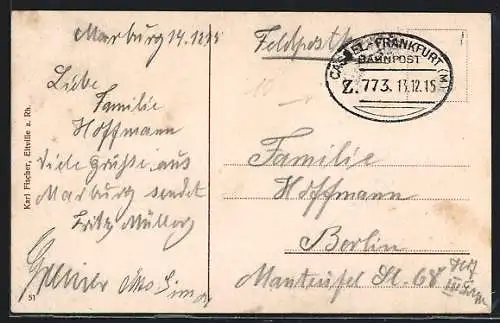 Marburg 14.12.15
Liebe
Familie
Hoffmann
Viele Grüße aus
Marburg sendet
Fritz Müller
Otto Simon
Feldpost
CASSEL-FRANKFURT (M)
BAHNPOST
Z.773. 13.12.15
Familie
Hoffmann
Berlin
Manteufel St. 68
Karl Fischer, Eltville a. Rh.
51